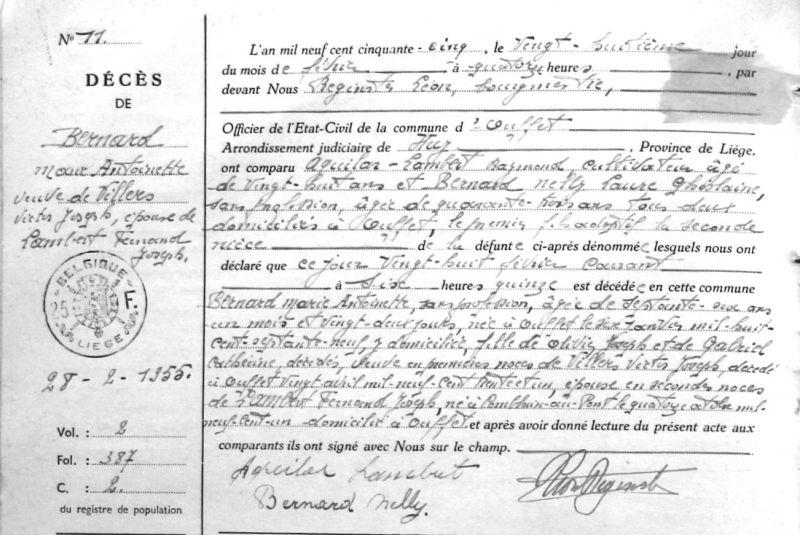 N° 11.
DÉCÈS
DE
Bernard
Marie Antoinette
veuve de Villers
Victor Joseph, épouse de
Lambert Fernand
Joseph.
BELGIQUE
25 F.
LIEGE
28 - 2 - 1955.
Vol. : 2
Fol. : 387
C. : 2.
du registre de population
L'an mil neuf cent cinquante - cinq, le vingt - huitième jour
du mois de février à quatorze heures, par
devant Nous Reginster Léon, bourgmestre,
Officier de l'Etat-Civil de la commune d'Ouffet
Arrondissement judiciaire de Huy, Province de Liége.
ont comparu Aquilar - Lambert Raymond, cultivateur âgé
de vingt-huit ans et Bernard Nelly Laure Ghislaine,
sans profession, âgée de quarante-trois ans tous deux
domiciliés à Ouffet, le premier fils adoptif la seconde
nièce de la défunte ci-après dénommée lesquels nous ont
déclaré que ce jour vingt-huit février courant
à six heures quinze est décédée en cette commune
Bernard Marie Antoinette, sans profession, âgée de septante-six ans
un mois et vingt-deux jours, née à Ouffet le six janvier mil-huit-
cent-septante-neuf, y domiciliée, fille de Olivier Joseph et de Gabriel
Catherine, décédés, veuve en premières noces de Villers Victor Joseph, décédé
à Ouffet vingt avril mil-neuf-cent trente et un, épouse en secondes noces
de Lambert Fernand Joseph, né à Comblain-au-Pont le quatorze octobre mil-
neuf-cent-un domicilié à Ouffet. et après avoir donné lecture du présent acte aux
comparants ils ont signé avec Nous sur le champ.
Aquilar Lambert
Bernard Nelly.